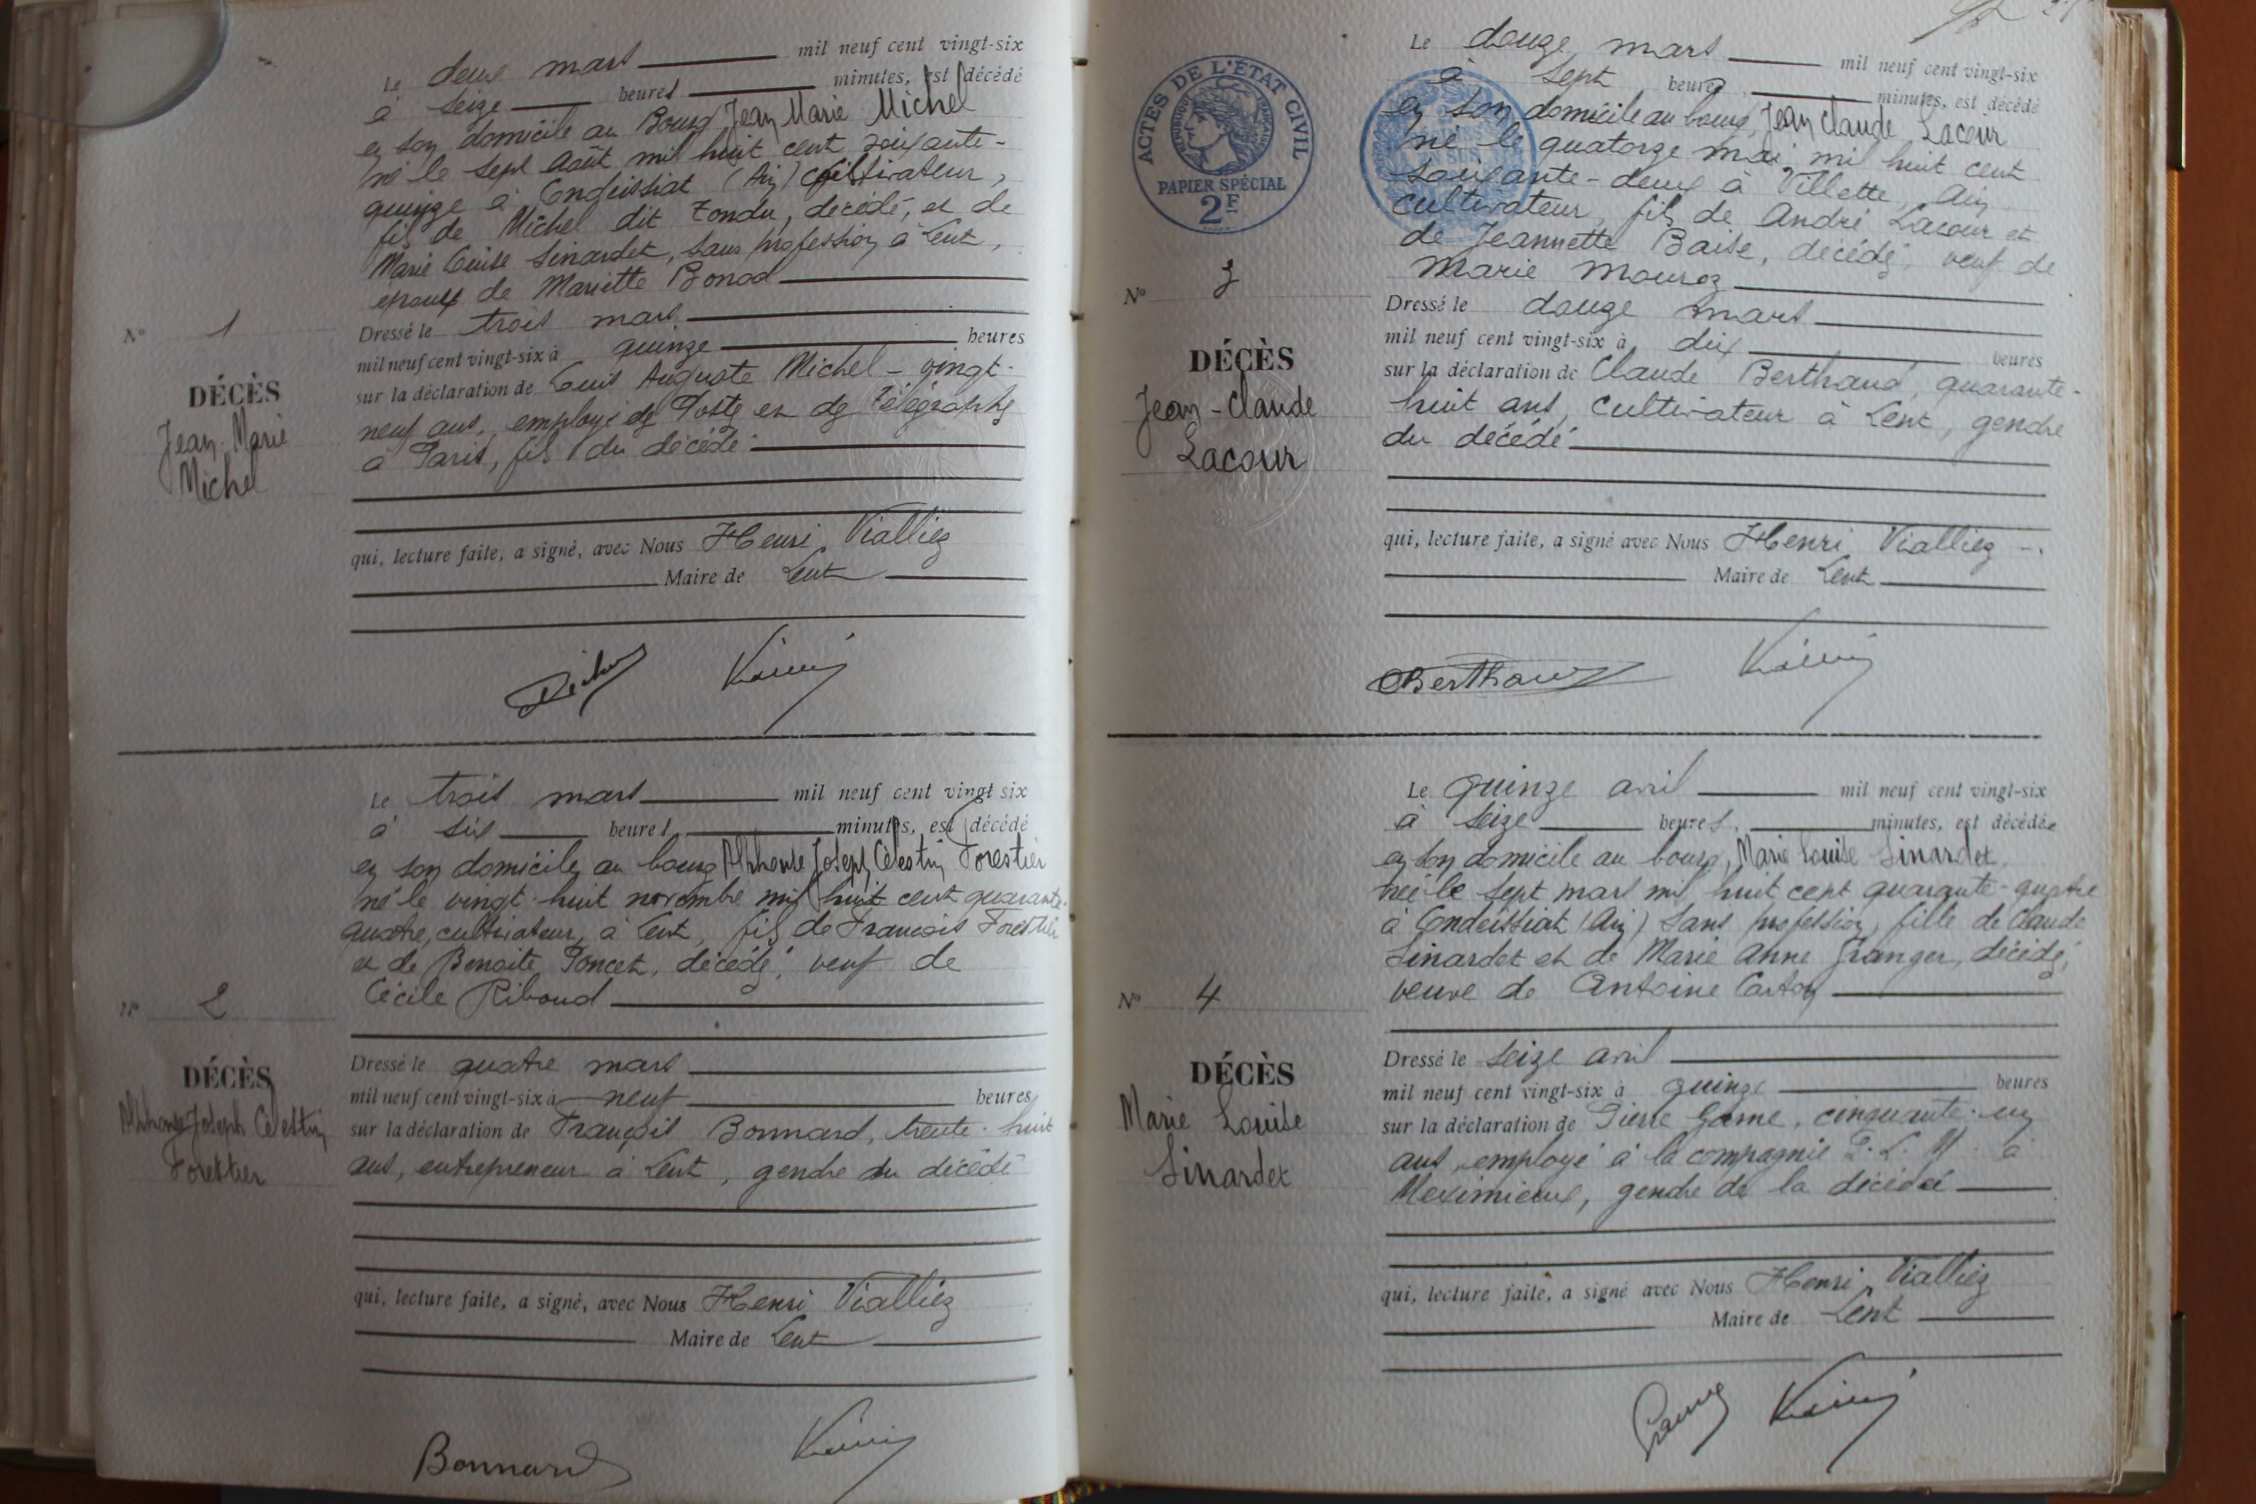 Le deux mars mil neuf cent vingt-six
à seize heures minutes, est décédé
en son domicile au Bourg Jean Marie Michel
né le sept Août mil huit cent soixante-
quinze à Condeissiat (Ain) cultivateur,
fils de Michel dit Tondu, décédé, et de
Marie Louise Sinardet, sans profession à Lent,
époux de Mariette Bonod
N° 1
DÉCÈS
Jean-Marie
Michel
Dressé le trois mars
mil neuf cent vingt-six à quinze heures
sur la déclaration de Louis Auguste Michel - vingt-
neuf ans, employé de Poste et de Télégraphe
à Paris, fils du décédé
qui, lecture faite, a signé, avec Nous Henri Vialliez
Maire de Lent
Le trois mars mil neuf cent vingt six
à six heures minutes, est décédé
en son domicile au bourg Alphonse Joseph Célestin Forestier
né le vingt-huit novembre mil huit cent quarante-
quatre, cultivateur, à Lent, fils de François Forestier
et de Benoite Poncet, décédé, veuf de
Cécile Riboud
N° 2
DÉCÈS
Alphonse Joseph Célestin
Forestier
Dressé le quatre mars
mil neuf cent vingt-six à neuf heures
sur la déclaration de François Bonnard, trente-huit
ans, entrepreneur à Lent, gendre du décédé
qui, lecture faite, a signé, avec Nous Henri Vialliez
Maire de Lent
Bonnard
ACTES DE L'ÉTAT CIVIL
PAPIER SPÉCIAL
2F
Le douze mars mil neuf cent vingt-six
à sept heures minutes, est décédé
en son domicile au bourg, Jean Claude Lacour
né le quatorze mai mil huit cent
soixante-deux à Villette, Ain
cultivateur, fils de André Lacour et
de Jeannette Baise, décédé, veuf de
Marie Mourez
N° 3
DÉCÈS
Jean-Claude
Lacour
Dressé le douze mars
mil neuf cent vingt-six à dix heures
sur la déclaration de Claude Berthaud, quarante-
huit ans, cultivateur à Lent, gendre
du décédé
qui, lecture faite, a signé avec Nous Henri Vialliez
Maire de Lent
Berthaud
Le quinze avril mil neuf cent vingt-six
à seize heures, minutes, est décédée
en son domicile au bourg, Marie Louise Sinardet
née le sept mars mil huit cent quarante-quatre
à Condeissiat (Ain) sans profession, fille de Claude
Sinardet et de Marie Anne Granger, décédé,
veuve de Antoine Carton
N° 4
DÉCÈS
Marie Louise
Sinardet
Dressé le seize avril
mil neuf cent vingt-six à quinze heures
sur la déclaration de Pierre Game, cinquante-un
ans, employé à la compagnie P. L. M. à
Meximieux, gendre de la décédée
qui, lecture faite, a signé avec Nous Henri Vialliez
Maire de Lent